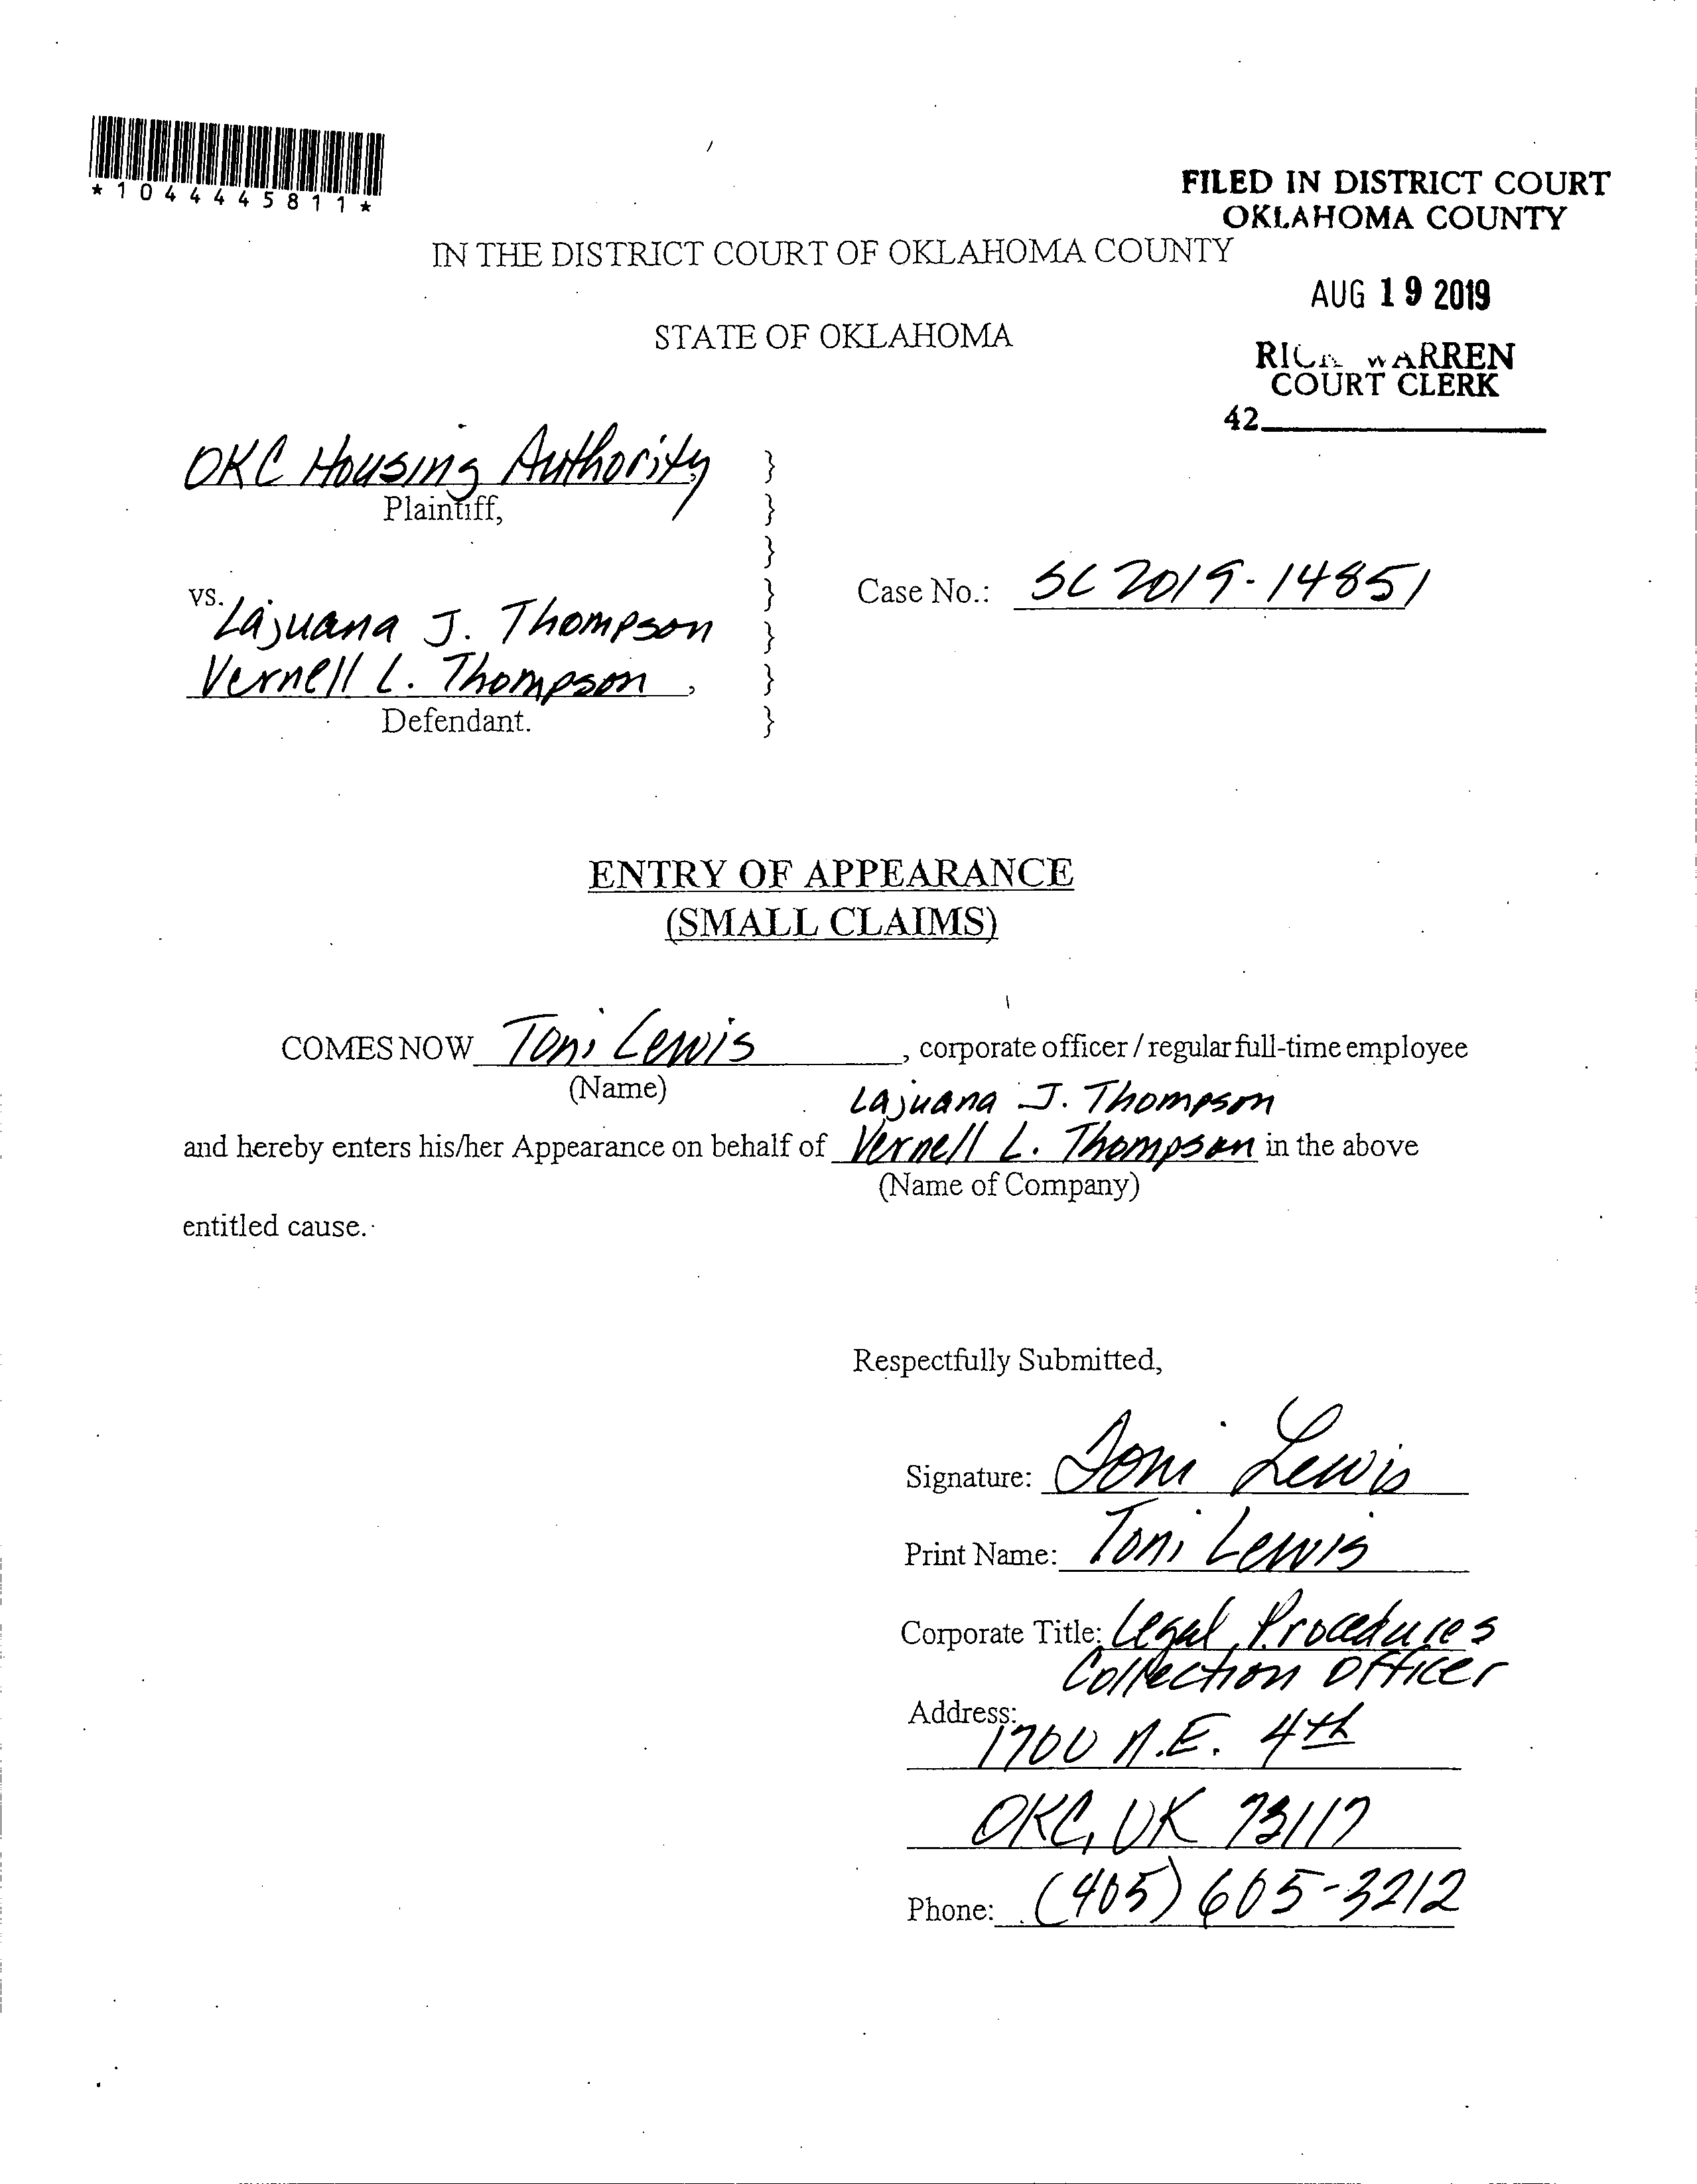 *1044445811*
FILED IN DISTRICT COURT
OKLAHOMA COUNTY
IN THE DISTRICT COURT OF OKLAHOMA COUNTY
AUG 19 2019
STATE OF OKLAHOMA
WARREN
COURT CLERK
42
OKC Housing Authority }
Plaintiff, }
}
vs. } Case No.: SC 2019-14851
Lajuana J. Thompson }
Vernell L. Thompson, }
Defendant. }
ENTRY OF APPEARANCE
(SMALL CLAIMS)
COMES NOW Toni Lewis, corporate officer / regular full-time employee
(Name)
Lajuana J. Thompson
and hereby enters his/her Appearance on behalf of Vernell L. Thompson in the above
(Name of Company)
entitled cause.
Respectfully Submitted,
Signature: Toni Lewis
Print Name: Toni Lewis
Corporate Title: Legal Procedures
Collection Officer
Address:
1700 N.E. 4th
OKC, OK 73117
Phone: (405) 605-3212